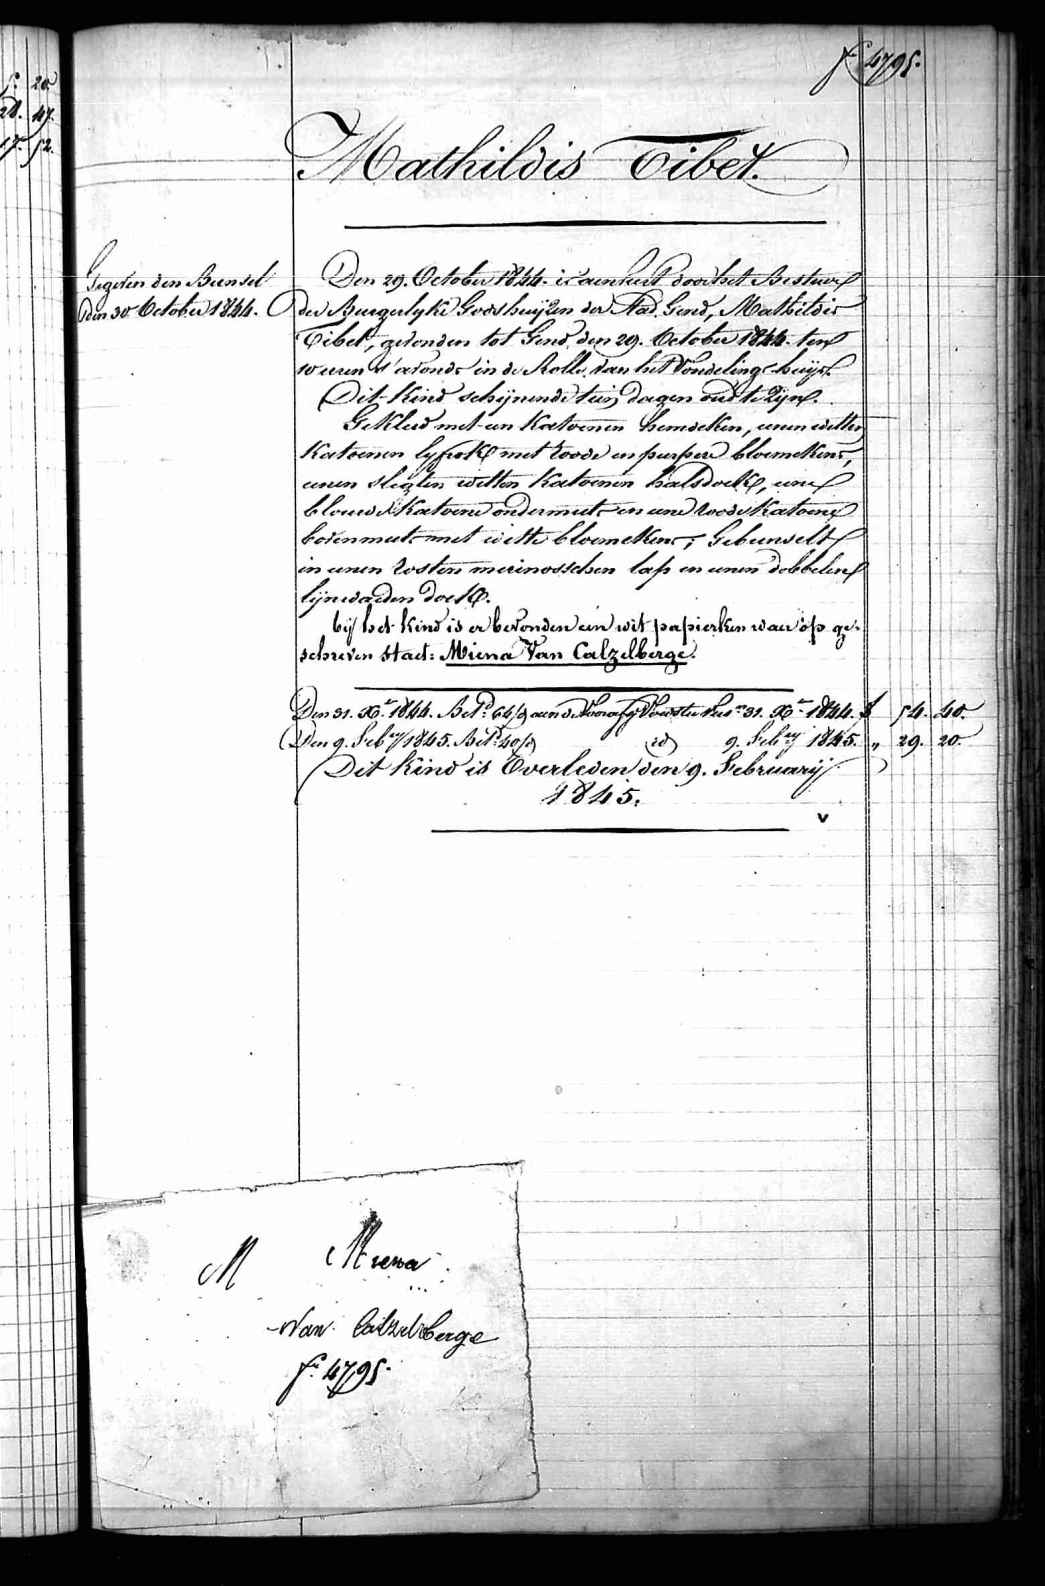 20
47.
52.
f.° 4795.
Mathildis Tibet.
Gegeven den Bunsel
den 30 October 1844.
Den 29. October 1844. is aenhert door het Bestuur
der Burgerlyke Godshuijzen der Stad Gend, Mathildis
Tibet, gevonden tot Gend, den 29. October 1844. ten
10 uren s'avonds in de Rolle van het Vondelings-huijs.
Dit kind schijnende tien dagen oud te zijn.
Gekleed met een katoenen hemdeken, eenen witten
katoenen lyfrok met roode en purpere bloemekens,
eenen slegten witten katoenen halsdoek, eene
blauwe katoene ondermuts en eene roode katoene
bovenmuts met witte bloemekens; Gebunselt
in eenen rosten merinosschen lap en eenen dobbelen
lijnwaeden doek.
bij het kind is er bevonden een wit papierken waer op ge-
schreven staet: Miena Van Calzelberge.
Den 31. Xb.r 1844. Bet.d 64/d aen de Voorzorg Voedster tus. 31. Xb.r 1844. f 54. 40.
Den 9. Feb.ry 1845. Bet.d 40/d id 9. Feb.ry 1845. „ 29. 20.
Dit kind is Overleden den 9. Februarij
1845.
v
M Miena
Van Calzelberge
f.° 4795.